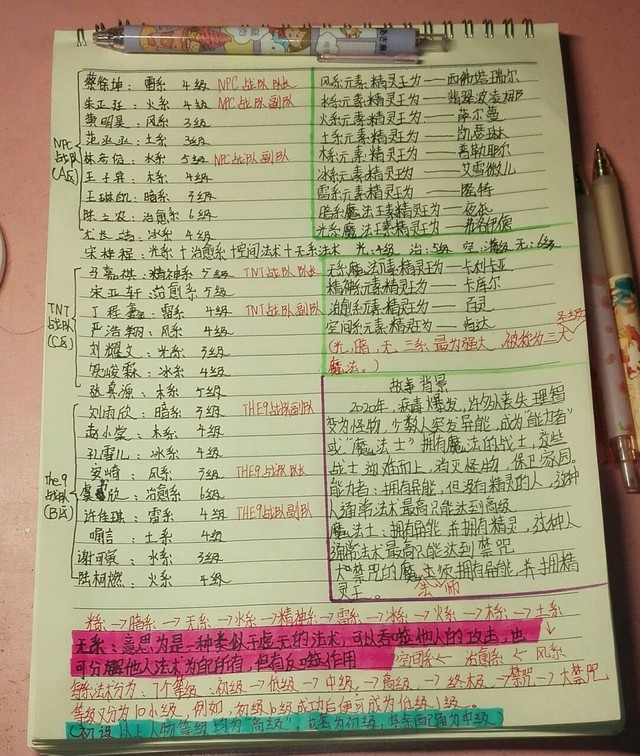 蔡徐坤：雷系 4级 NPC战队队长
朱正廷：火系 4级 NPC战队副队
黄明昊：风系 3级
范丞丞：土系 3级
林彦俊：水系 5级 NPC战队副队
王子异：木系 4级
王琳凯：暗系 3级
陈立农：治愈系 6级
尤长靖：冰系 4级
NPC战队(A区)
宋梓程：光系+治愈系+空间法术+无系法术 光:4级 治:5级 空:满级 无:6级
马嘉祺：精神系 5级 TNT战队队长
宋亚轩：治愈系5级
丁程鑫：雷系 4级 TNT战队副队
严浩翔：风系 4级
刘耀文：光系 3级
贺峻霖：冰系 4级
张真源：木系 5级
TNT战队(C区)
刘雨欣：暗系 3级 THE9战队副队
赵小棠：木系 4级
孔雪儿：冰系 4级
安崎：风系 3级 THE9战队队长
虞书欣：治愈系 6级
许佳琪：雷系 4级 THE9战队副队
喻言：土系 4级
谢可寅：水系 3级
陆柯燃：火系 4级
The9战队(B区)
风系元素精灵王为——西弗塔瑞尔
水系元素精灵王为——翡翠波凌娜
火系元素精灵王为——萨尔曼
土系元素精灵王为——凯瑟琳
木系元素精灵王为——普勒耶尔
冰系元素精灵王为——艾雪微儿
雷系元素精灵王为——
暗系魔法王素精灵王为——夜夜
光系魔法王素精灵王为——希洛伊德
无系魔法元素精灵王为——卡利卡亚
精神系元素精灵王为——卡库尔
治愈系元素精灵王为——百灵
空间系元素精灵王为——
(光，暗，无，三系最为强大，被称为三大系级魔法。)
故事背景
2020年，病毒爆发，许多人丧失理智
变为怪物，少数人突发异能，成为“能力者”
或“魔法士”拥有魔法的战士，这些
战士迎难而上，消灭怪物，保卫家园。
能力者：拥有异能，但没有精灵的人，这种
人通常法术最高只能达到高级
魔法士：拥有异能并拥有精灵，这种人
通常法术最高只能达到禁咒
大禁咒的魔法师拥有异能，并拥精
灵王。
光系→暗系→无系→水系→精神系→雷系→冰系→火系→木系→土系
↓
空间系←治愈系←风系
无系：意思为是一种类似于虚无的法术，可以吞噬他人的攻击，也
可分解他人法术为自己有，但有反噬作用
每系法术分为：7个等级：初级→低级→中级→高级→终极→禁咒→大禁咒
等级又分为10小级，例如，初级10级成功后便可成为低级1级。